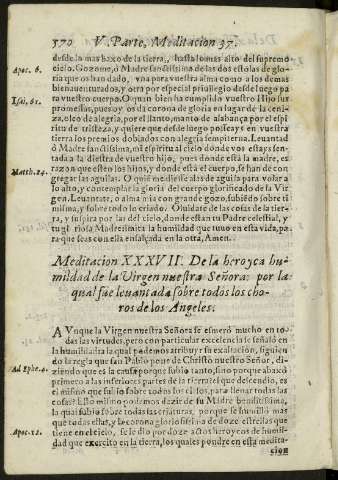 570 V. Parte, Meditacion 37.
desde lo mas baxo de la tierra, hasta lo mas alto del supremo
Apoc. 6.
cielo. Gozome, ò Madre santissima de las dos estolas de glo-
ria que os han dado, vna para vuestra alma como a los demas
bienauenturados, y otra por especial priuilegio desde luego pa
Isai. 61.
ra vuestro cuerpo. O quan bien ha cumplido vuestro Hijo sus
promessas, pues oy os da corona de gloria en lugar de la ceni-
za, oleo de alegria, por el llanto, manto de alabança por el espi
ritu de tristeza, y quiere que desde luego posseays en vuestra
tierra los premios doblados con alegria sempiterna. Leuantad
ò Madre santissima, mi espiritu al cielo donde vos estays sen-
tada a la diestra de vuestro hijo, pues donde està la madre, es
razon que esten los hijos, y donde està el cuerpo, se han de con
Matth. 24.
gregar las aguilas. O quien me diesse alas de aguila para volar a
lo alto, y contemplar la gloria del cuerpo glorificado de la Vir
gen. Leuantate, o alma mia con grande gozo, subiendo sobre ti
misma, y sobre todo lo criado. Oluidate de las cosas de la tier-
ra, y suspira por las del cielo, donde estan tu Padre celestial, y
tu gloriosa Madre: imita la humildad que tuuo en esta vida, pa
ra que seas con ella ensalçada en la otra, Amen.
Meditacion XXXVII. De la heroyca hu-
mildad de la Virgen nuestra Señora: por la
qual fue leuantada sobre todos los cho-
ros de los Angeles.
AVnque la Virgen nuestra Señora se esmerò mucho en to-
das las virtudes, pero con particular excelencia se señalò en
la humildad a la qual podemos atribuyr su exaltacion, siguien
do la regla que san Pablo pone de Christo nuestro Señor, di-
Ad Ephe. 4.
ziendo que es la causa porque subio tanto, sino porque abaxò
primero a las inferiores partes de la tierra: el que descendio, es
el mismo que subio sobre todos los cielos, para llenar todas las
cosas? Esto mismo podemos dezir de su Madre benditissima,
la qual subio sobre todas las criaturas, porque se humillò mas
que todas ellas, y la corona gloriosissima de doze estrellas que
Apoc. 12.
tiene en el cielo, se le dio por doze actos heroycos de humil-
dad que exercitò en la tierra, los quales pondre en esta medita-
cion